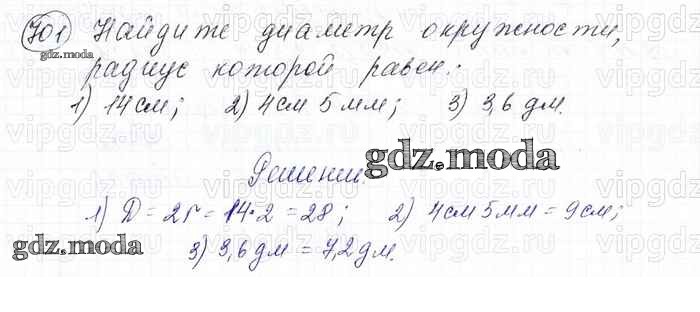 701 Найдите диаметр окружности,
gdz.moda
радиус которой равен:
1) 14 см; 2) 4 см 5 мм; 3) 3,6 дм.
Решение.
gdz.moda
1) D = 2r = 14·2 = 28; 2) 4 см 5 мм = 9 см;
gdz.moda
3) 3,6 дм = 7,2 дм.